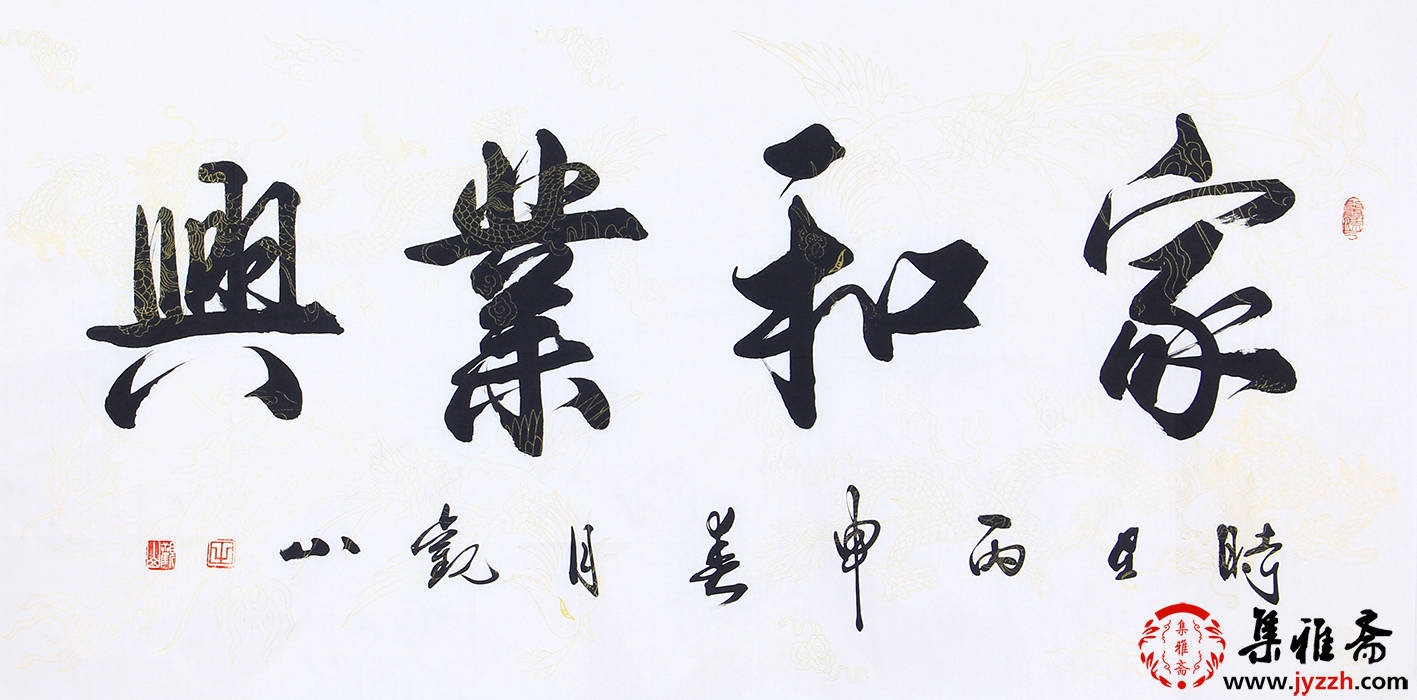 家和業興
時丙申春月觀山
觀山
集雅斋
集雅斋
www.jyzzh.com